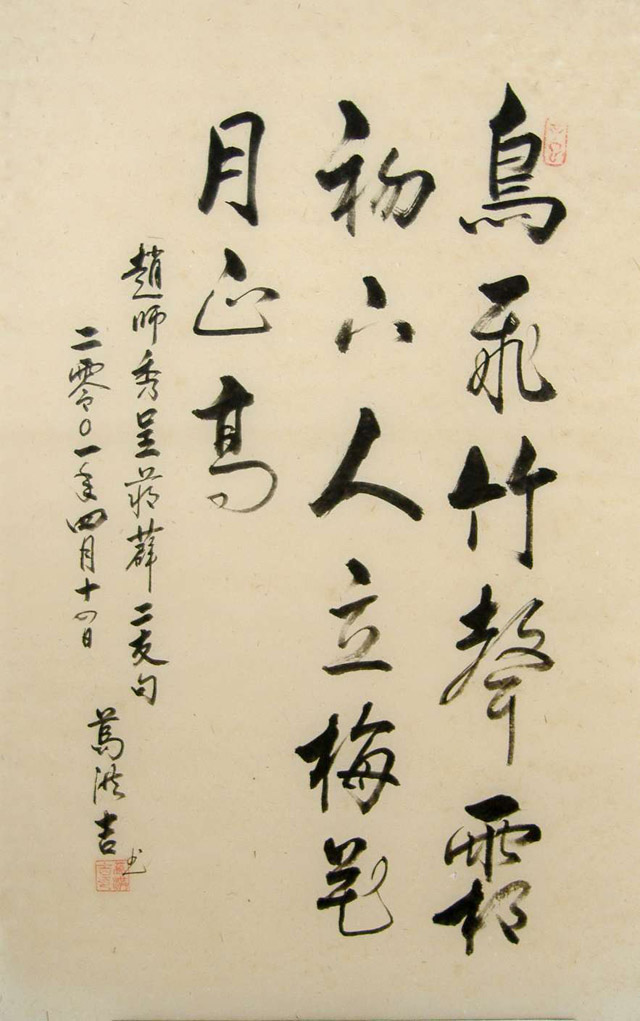 鳥飛竹聲霜
初下人立梅花
月正高
趙師秀呈蔣薛二友句
二零〇一年四月十日
洪吉书